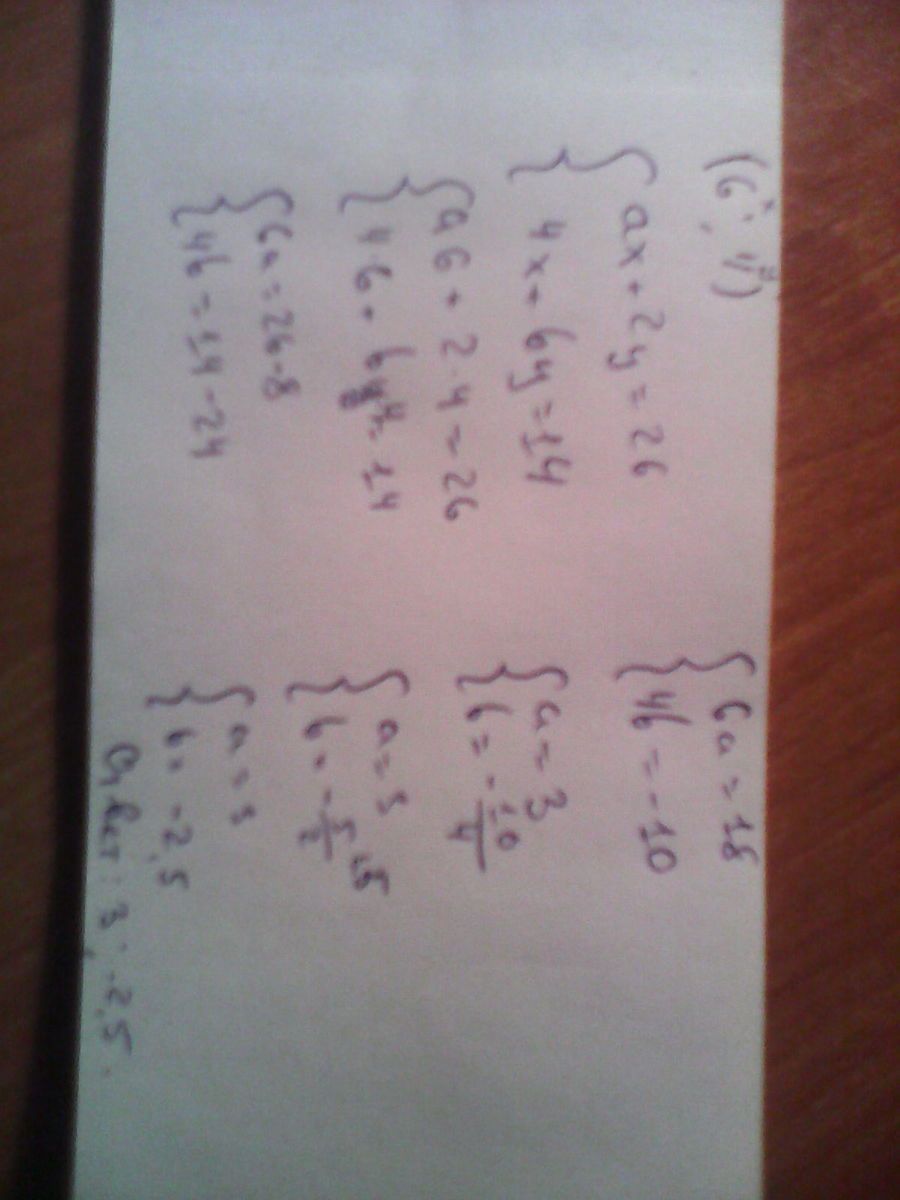 (6; 4)
x y
{ ax + 2y = 26
{ 4x + by = 14
{ a6 + 2·4 = 26
{ 4·6 + b4 = 14
{ 6a = 26-8
{ 4b = 14-24
{ 6a = 18
{ 4b = -10
{ a = 3
{ b = -10/4
{ a = 3
{ b = -5/2
{ a = 3
{ b = -2,5
Ответ: 3; -2,5.